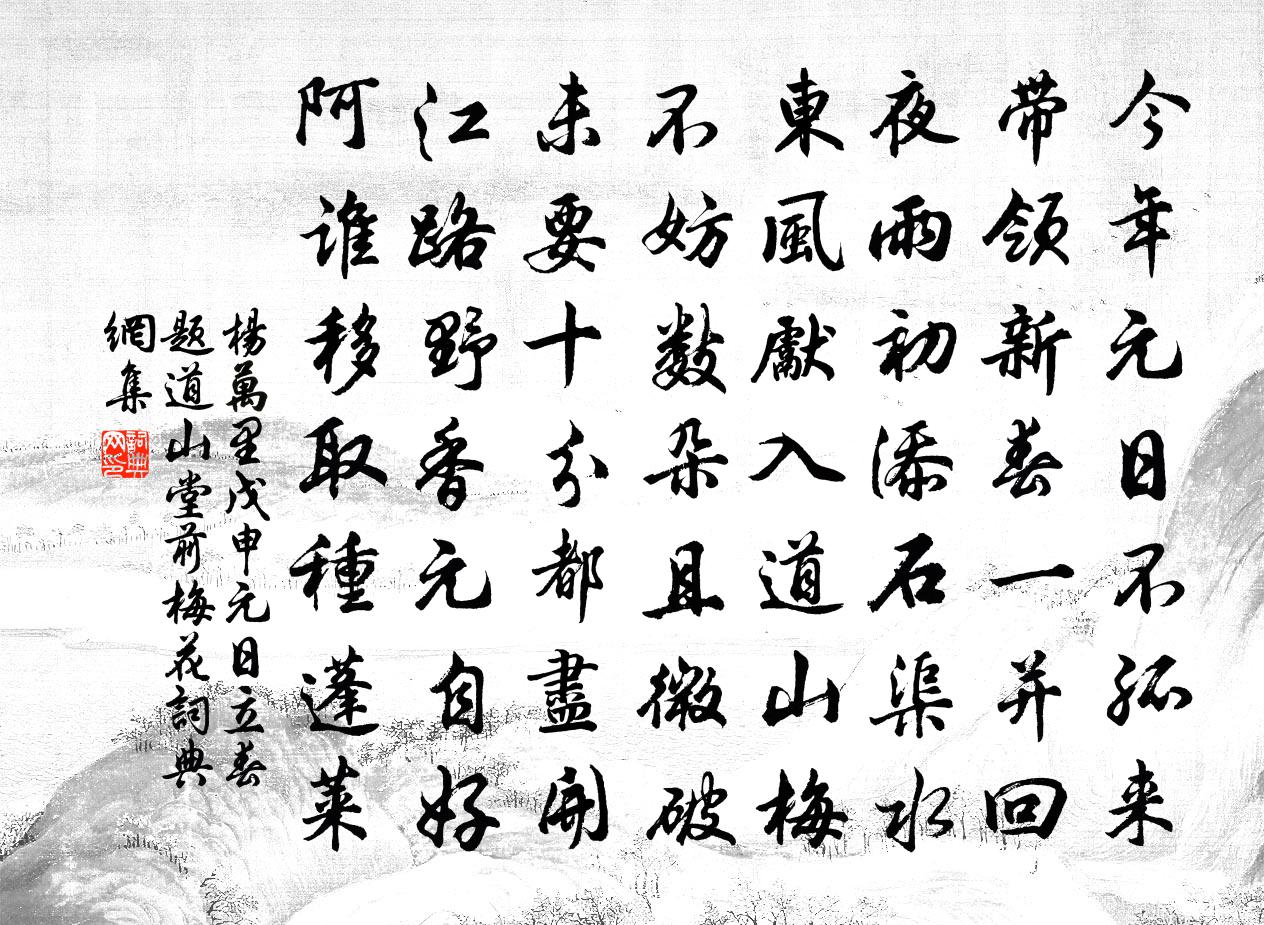 今年元日不孤来
帶领新春一并回
夜雨初添石渠水
東風獻入道山梅
不妨數朵且微破
未要十分都盡開
江路野香元自好
阿誰移取種蓬萊
楊萬里戊申元日立春
題道山堂前梅花詞典
網集
詞典
网印